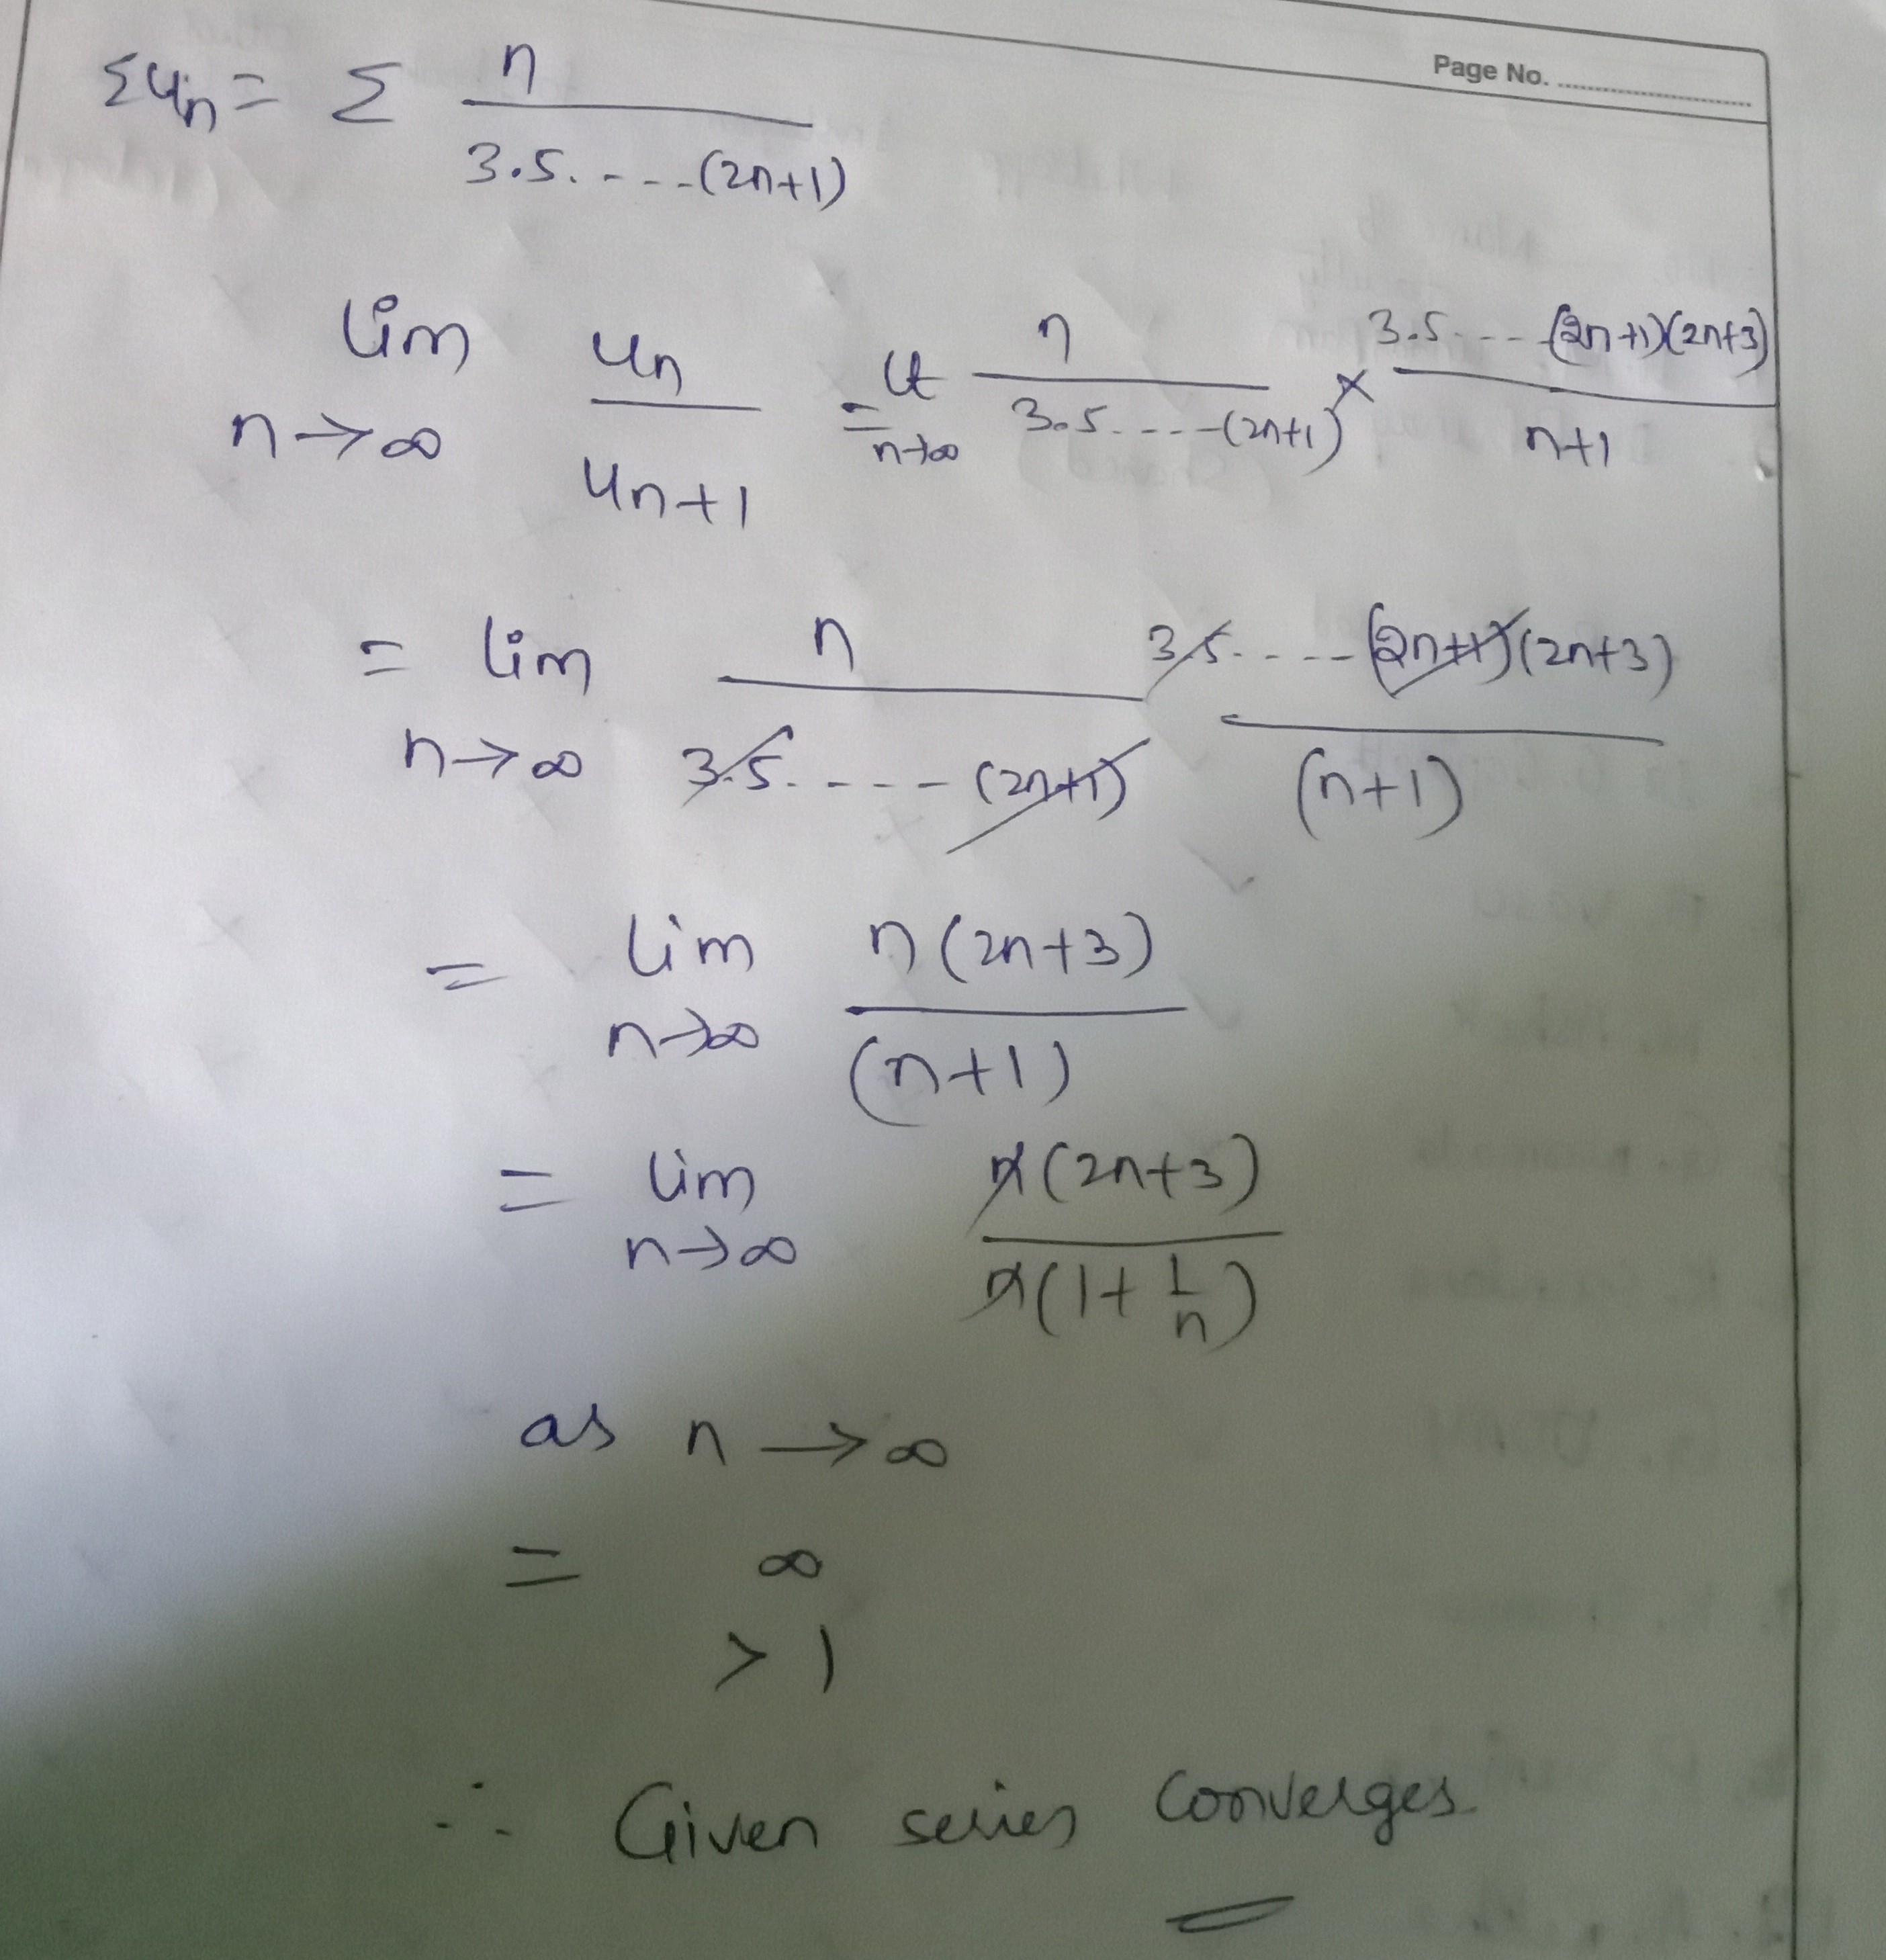 Page No. ....................
Σuₙ = Σ n / 3.5.----(2n+1)
lim n→∞ uₙ / uₙ₊₁ = lt n→∞ n / 3.5.----(2n+1) × 3.5----(2n+1)(2n+3) / n+1
= lim n→∞ n / 3.5.----(2n+1) 3.5.----(2n+1)(2n+3) / (n+1)
= lim n→∞ n(2n+3) / (n+1)
= lim n→∞ n(2n+3) / n(1+1/n)
as n→∞
= ∞
> 1
∴ Given series converges